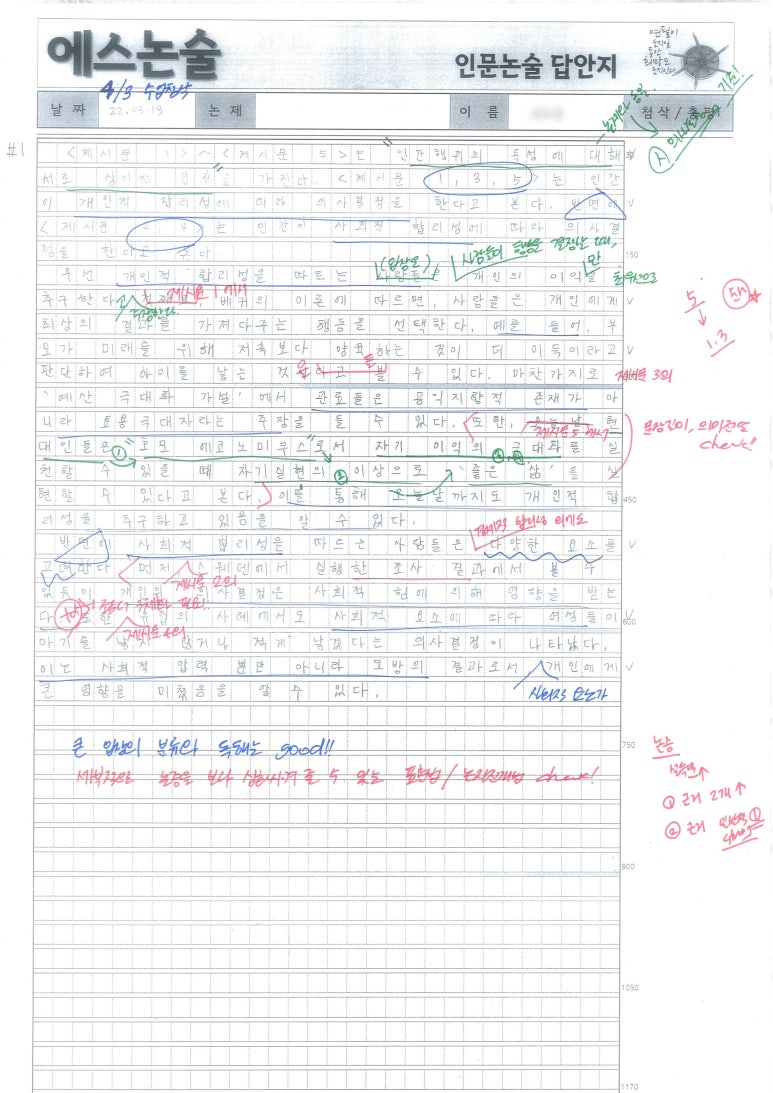 에스논술
인문논술 답안지
연필이
움직일
동안
희망도
움직인다
4/3 수업첨삭
날 짜
22.03.13
논 제
이 름
첨삭 / 총평
#1
<제시문 1>~<제시문 5>는 "인간행위의 특성에 대해
서로 상이한 입장"을 가진다. <제시문 1,3,5>는 인간
이 개인적 합리성에 따라 의사결정을 한다고 본다. 반면에
<제시문 2, 4>는 인간이 사회적 합리성에 따라 의사결
정을 한다고 본다.
150
(입장은)
사람들이 행동을 결정할 때,
만
우선 개인적 합리성을 따르는 사람들은 개인의 이익을 최우선으로
추구한다고
주장한다.
제시문 1에서
베커의 이론에 따르면, 사람들은 개인에게
최상의 결과를 가져다주는 행동을 선택한다. 예를 들어, 부
모가 미래를 위해 저축보다 양육하는 것이 더 이득이라고
판단하여 아이를 낳는 것 볼 수 있다. 마찬가지로
제시문 3의
'예산 극대화 가설'에서 관료들은 공익지향적 존재가 아
니라 효용극대자라는 주장을 들 수 있다. 또한, 오늘날 현
제시문 5에서
대인들은 "호모 에코노미쿠스"로서 자기 이익의 극대화를 실
천할 수 있을 때 자기실현의 이상으로 '좋은 삶'을 실
현할 수 있다고 본다. 이를 통해 오늘날까지도 개인적 합
450
리성을 추구하고 있음을 알 수 있다.
반면에 사회적 합리성을 따르는 사람들은 다양한 요소를
고려한다. 먼저 스웨덴에서 실행한 조사 결과에서 볼 수
제시문 2의
있듯이 개인의 의사결정은 사회적 힘에 의해 영향을 받는
다. 또한 유럽의 사례에서도 사회적 요소에 따라 여성들이
600
제시문 4의
아기를 낳지 않거나 적게 낳겠다는 의사결정이 나타났다.
이는 사회적 압력 뿐만 아니라 모방의 결과로서 개인에게
큰 영향을 미쳤음을 알 수 있다.
사회적 요소가
큰 입장의 분류와 독해는 good!!
세부적으로 논증을 보다 상승시켜 줄 수 있는 표현법 / 논지전개법 check!
5
1.3
문장길이, 의미전달
check!!
논증
설득력↑
① 근거 2개↑
② 근거
750
900
1050
1170